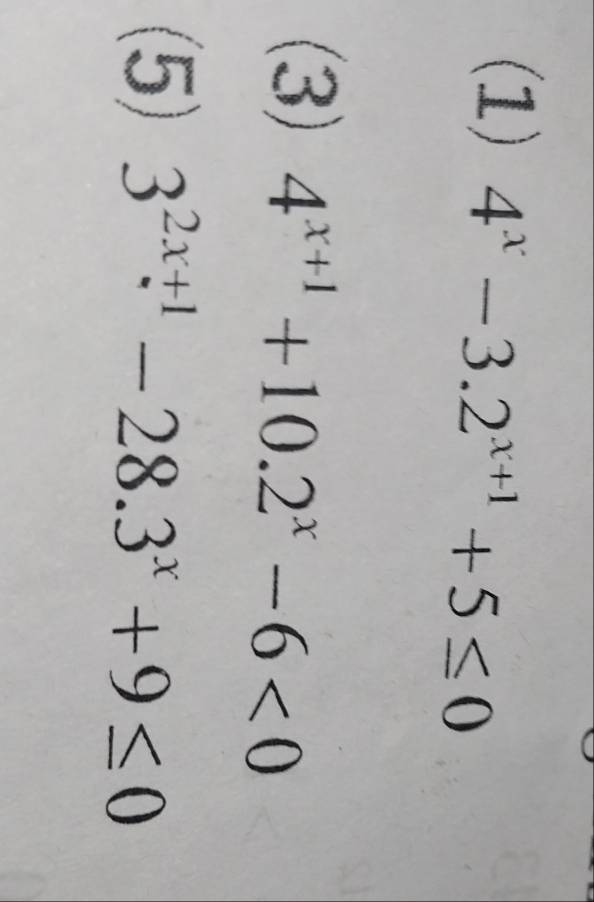 (1) 4^x − 3.2^{x+1} + 5 ≤ 0
(3) 4^{x+1} + 10.2^x − 6 < 0
(5) 3^{2x+1} − 28.3^x + 9 ≤ 0